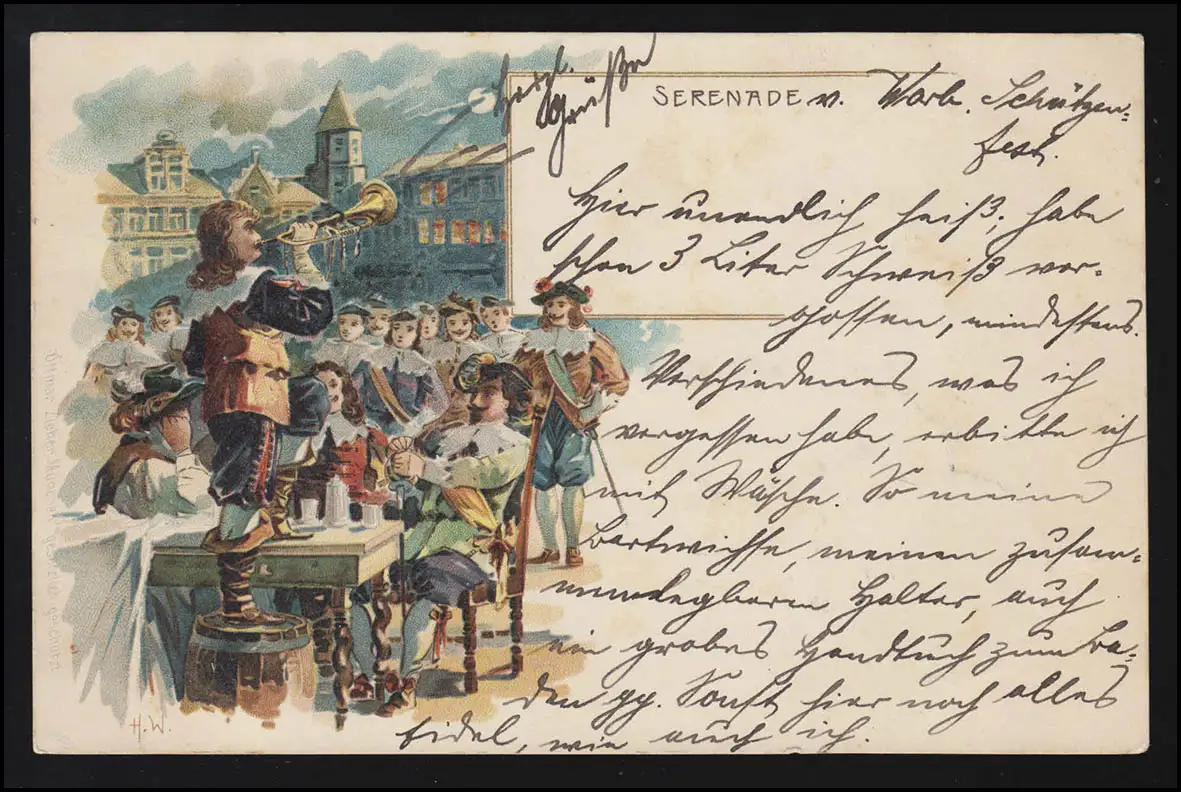 Herzl.
Grüße
SERENADE v. Warb. Schützen-
fest.
Hier unendlich heiß; habe
schon 3 Liter Schweiß ver-
gossen, mindestens.
Verschiedenes, was ich
vergessen habe, erbitte ich
mit Wäsche. So meine
Bartwichse, meinen zusam-
menlegbaren Halter, auch
ein grobes Handtuch zum Ba-
den pp. Sonst hier noch alles
fidel, wie auch ich.
H.W.